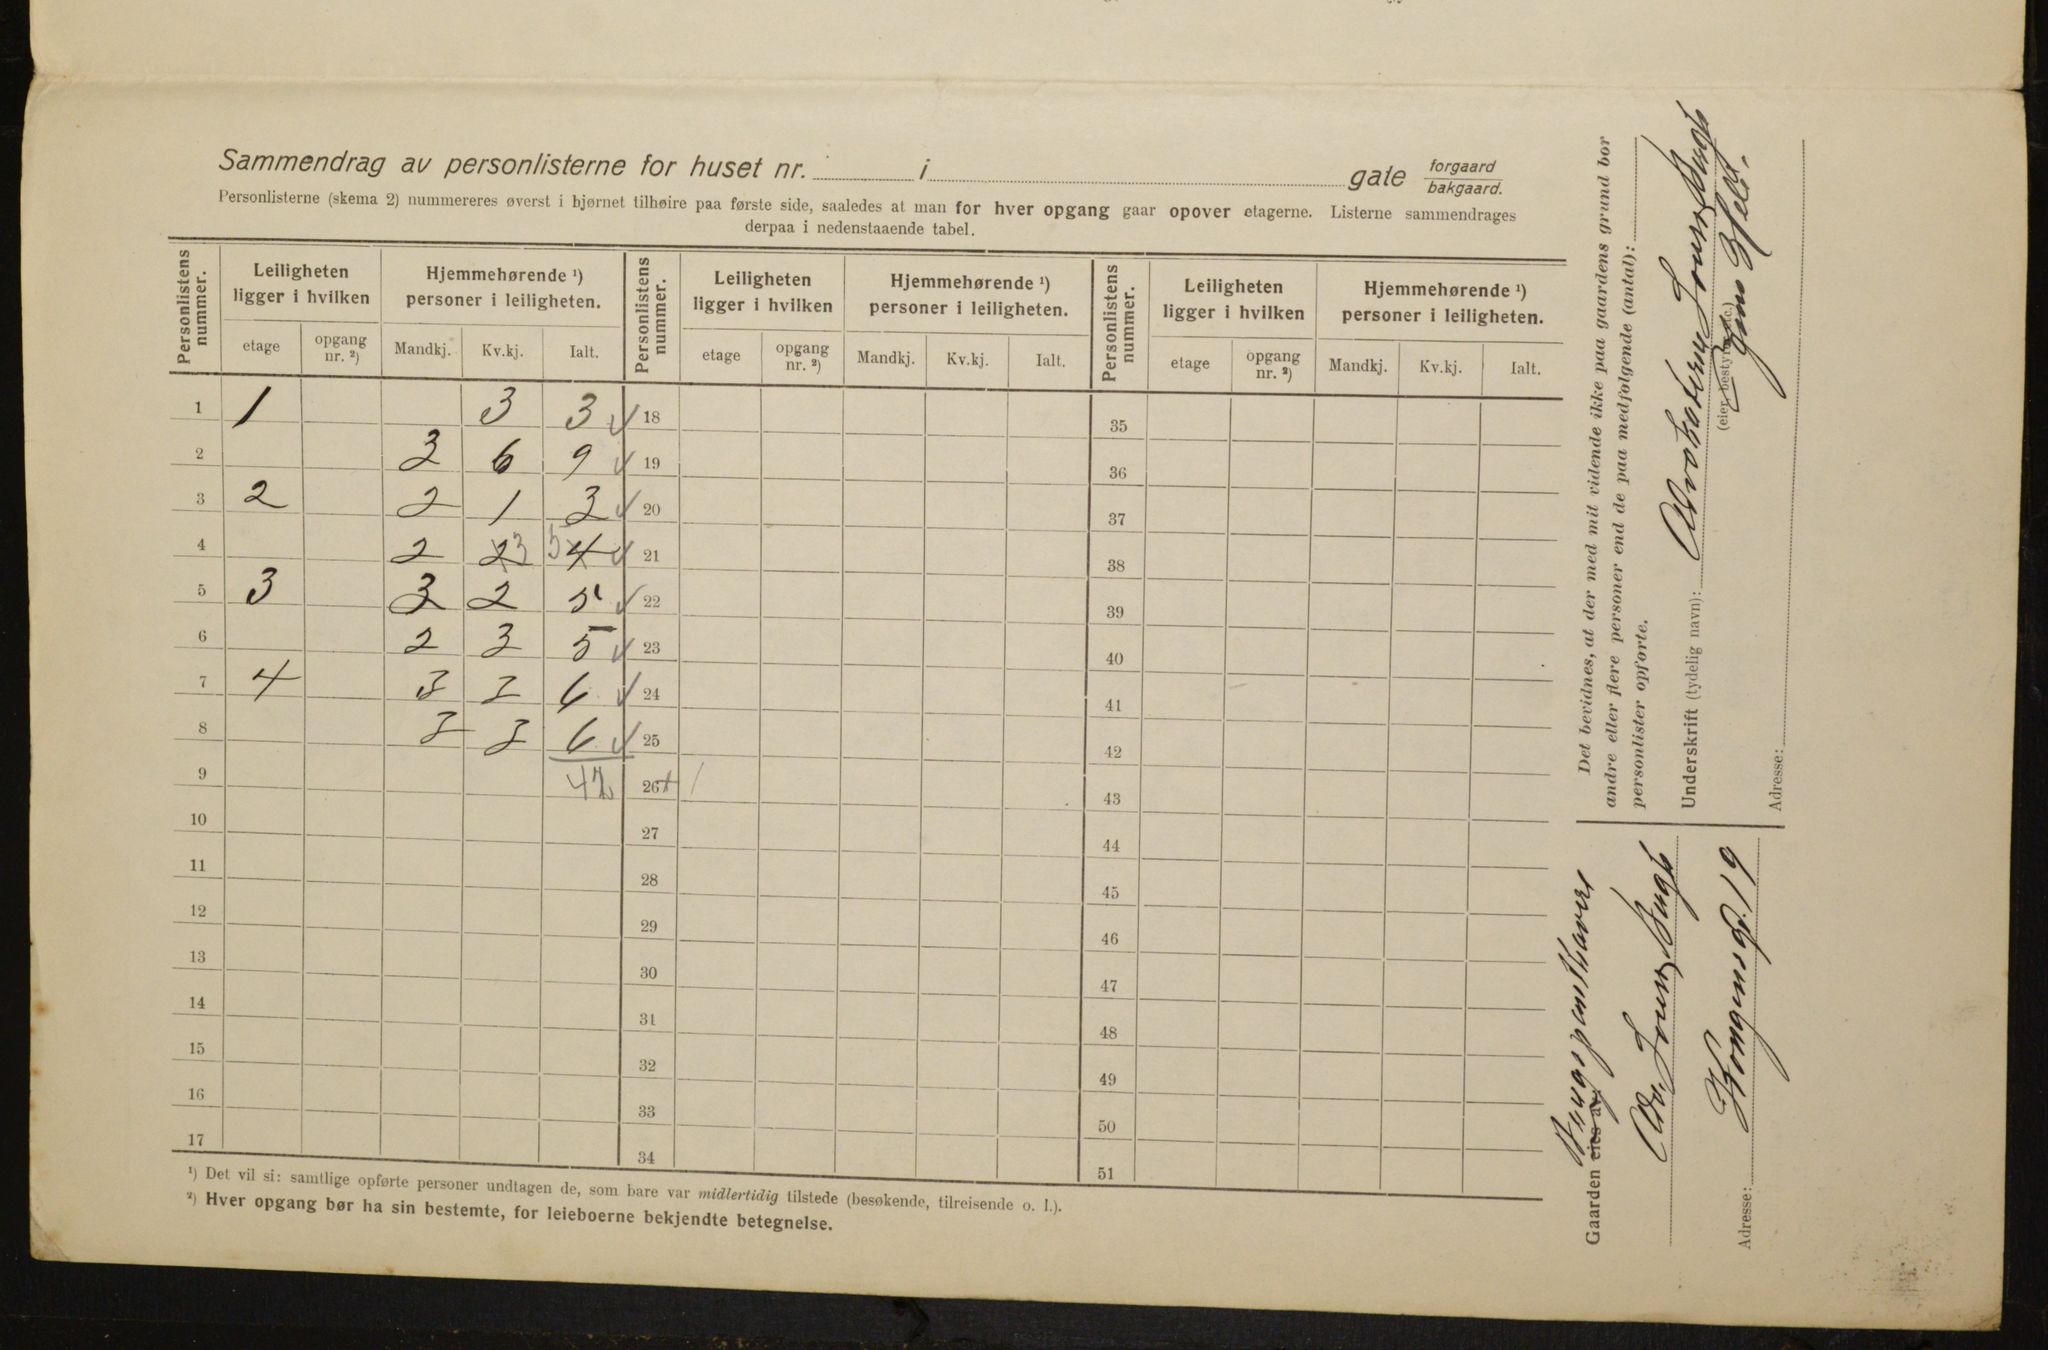 Sammendrag av personlisterne for huset nr. i gate forgaard bakgaard.
Personlisterne (skema 2) nummereres øverst i hjørnet tilhøire paa første side, saaledes at man for hver opgang gaar opover etagerne. Listerne sammendrages
derpaa i nedenstaaende tabel.
Personlistens nummer. Leiligheten ligger i hvilken Hjemmehørende ¹) personer i leiligheten. Personlistens nummer. Leiligheten ligger i hvilken Hjemmehørende ¹) personer i leiligheten. Personlistens nummer. Leiligheten ligger i hvilken Hjemmehørende ¹) personer i leiligheten.
etage opgang nr. ²) Mandkj. Kv.kj. Ialt. etage opgang nr. ²) Mandkj. Kv.kj. Ialt. etage opgang nr. ²) Mandkj. Kv.kj. Ialt.
1 1 3 3 18 35
2 3 6 9 19 36
3 2 2 1 3 20 37
4 2 2 3 5 4 21 38
5 3 3 2 5 22 39
6 2 3 5 23 40
7 4 3 3 6 24 41
8 3 3 6 25 42
9 42 26 43
10 27 44
11 28 45
12 29 46
13 30 47
14 31 48
15 32 49
16 33 50
17 34 51
¹) Det vil si: samtlige opførte personer undtagen de, som bare var midlertidig tilstede (besøkende, tilreisende o. l.).
²) Hver opgang bør ha sin bestemte, for leieboerne bekjendte betegnelse.
Det bevidnes, at der med mit vidende ikke paa gaardens grund bor
andre eller flere personer end de paa medfølgende (antal):
personlister opførte.
Underskrift (tydelig navn):
(eier, bestyrer etc.)
Adresse:
Gaarden eies av:
Adresse: Kongensgt. 19